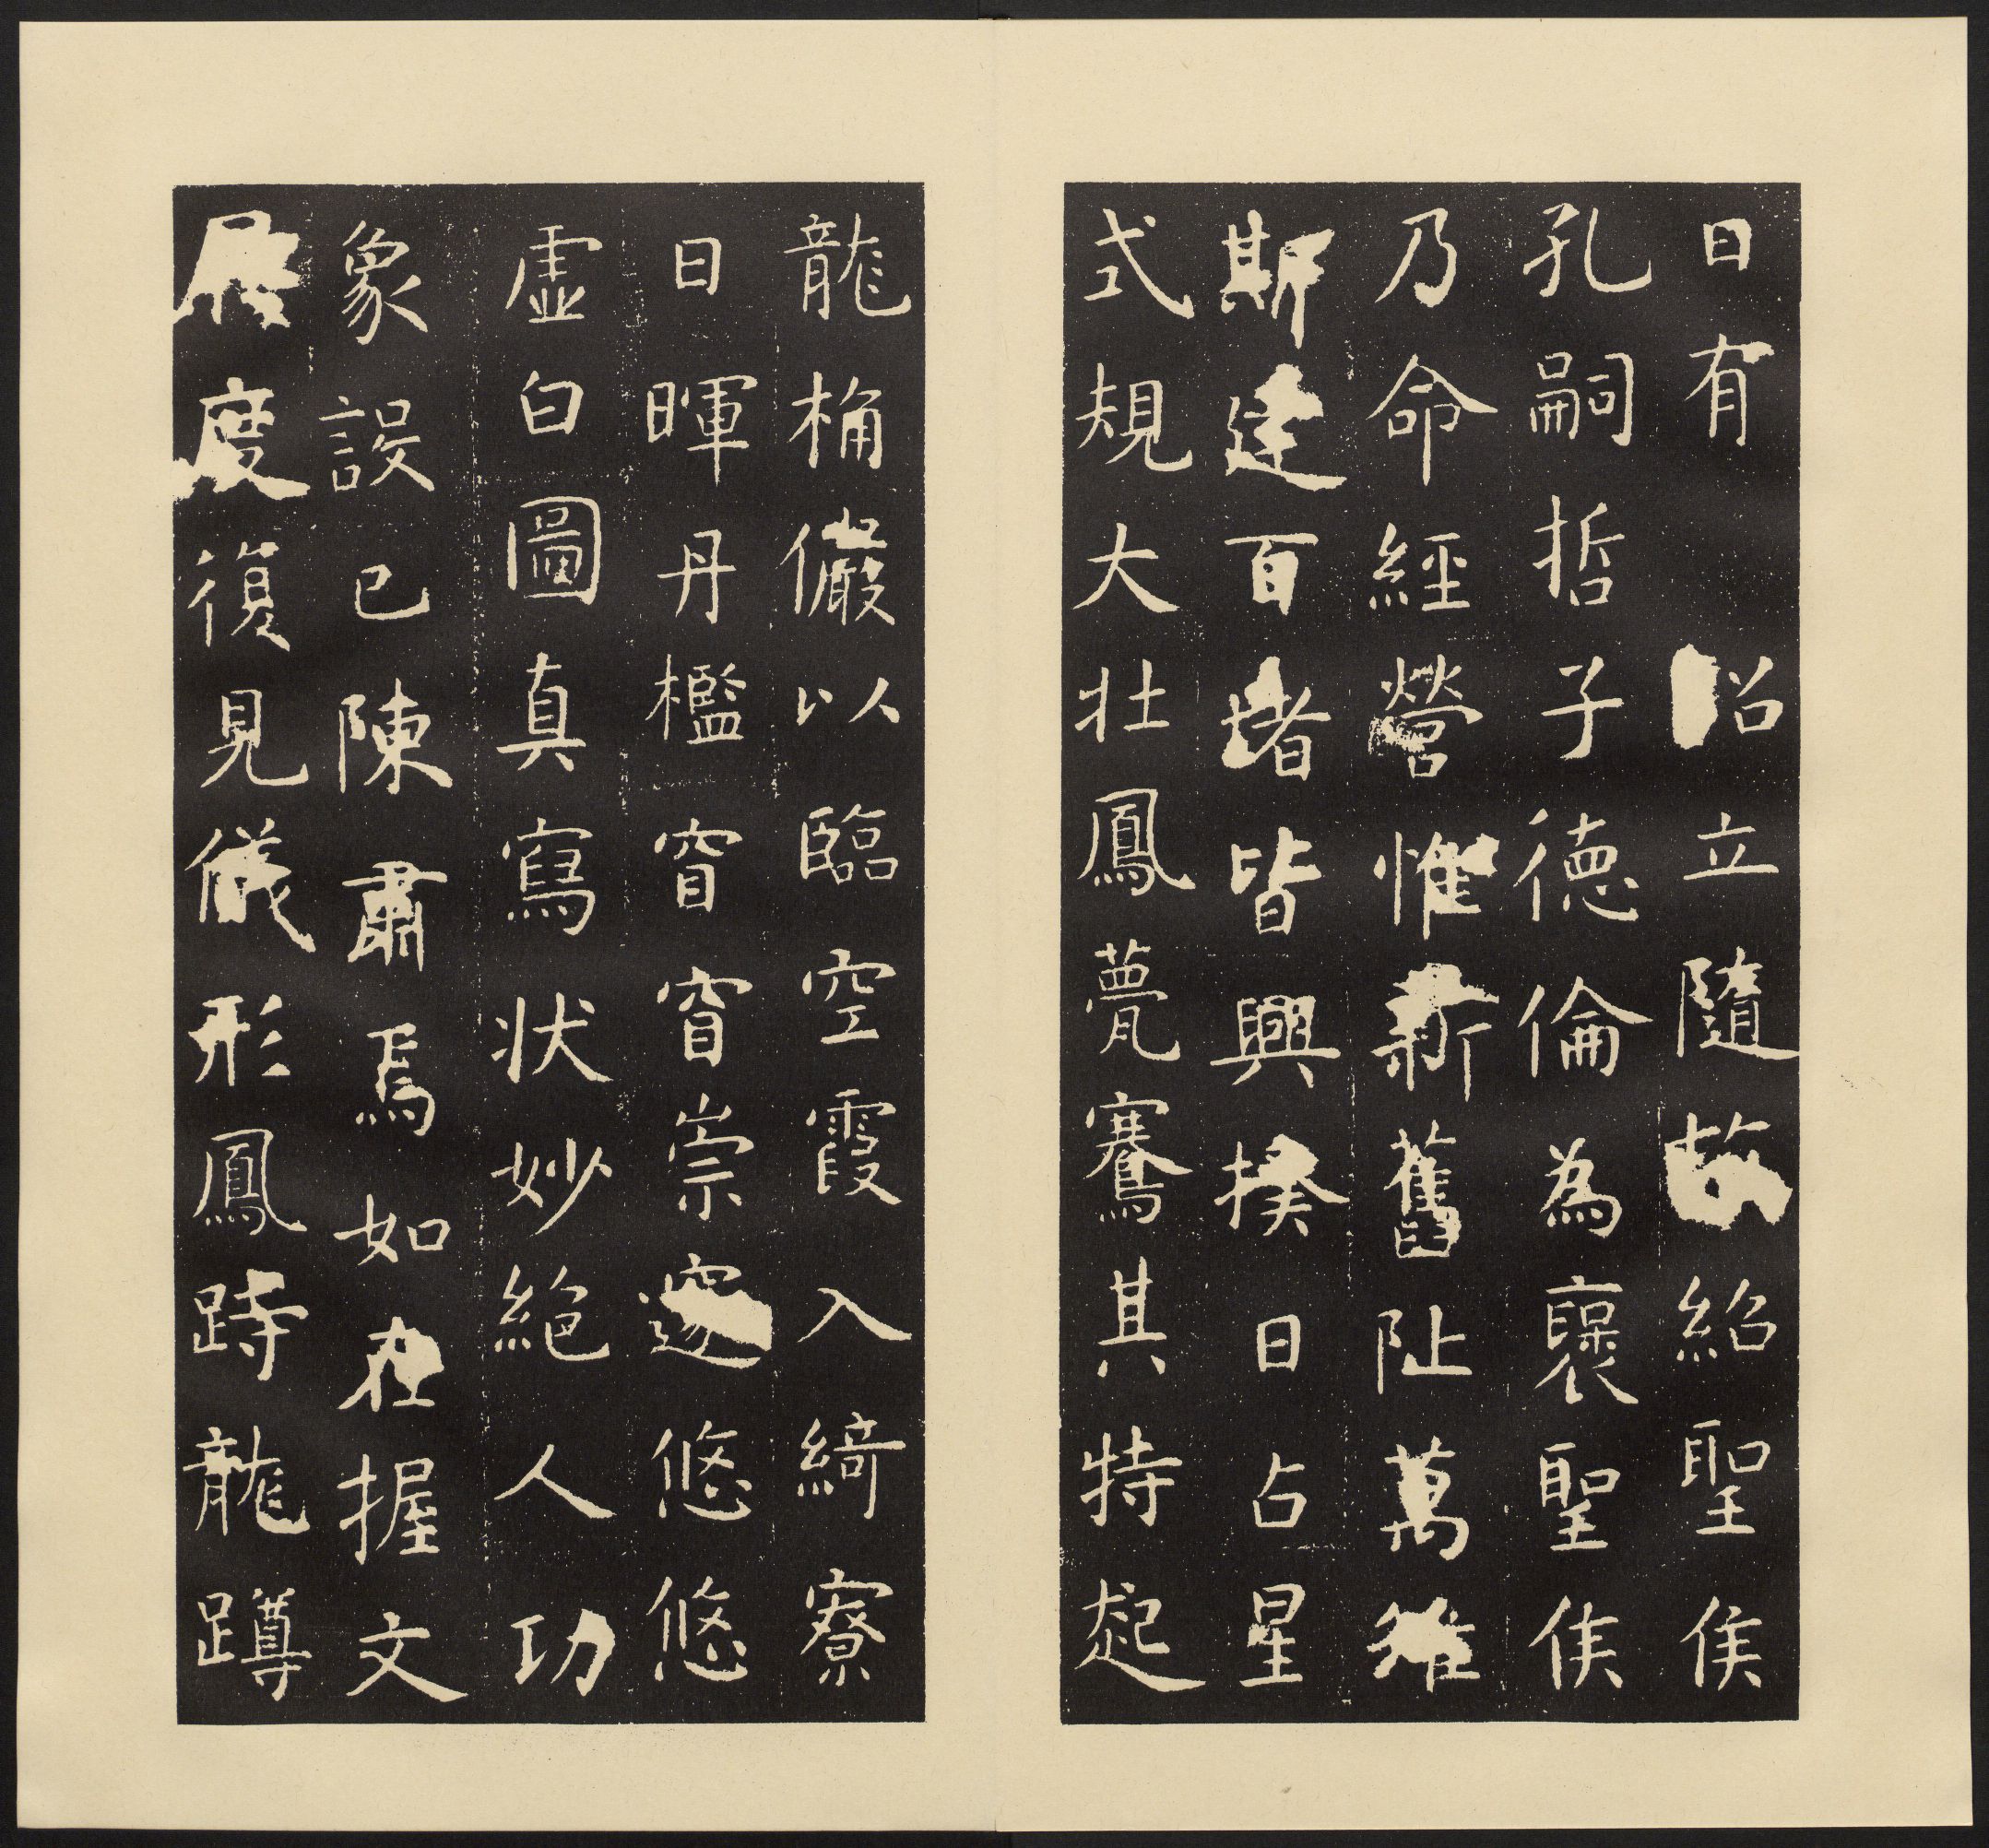 日有 詔立隨故紹聖侯
孔嗣哲子德倫為襃聖侯
乃命經營惟新舊阯萬雉
斯建百堵皆興揆日占星
式規大壯鳳甍騫其特起
龍桷儼以臨空霞入綺寮
日暉丹檻窅窅崇邃悠悠
虛白圖真寫狀妙絕人功
象設已陳肅焉如在握文
履度復見儀形鳳跱龍蹲